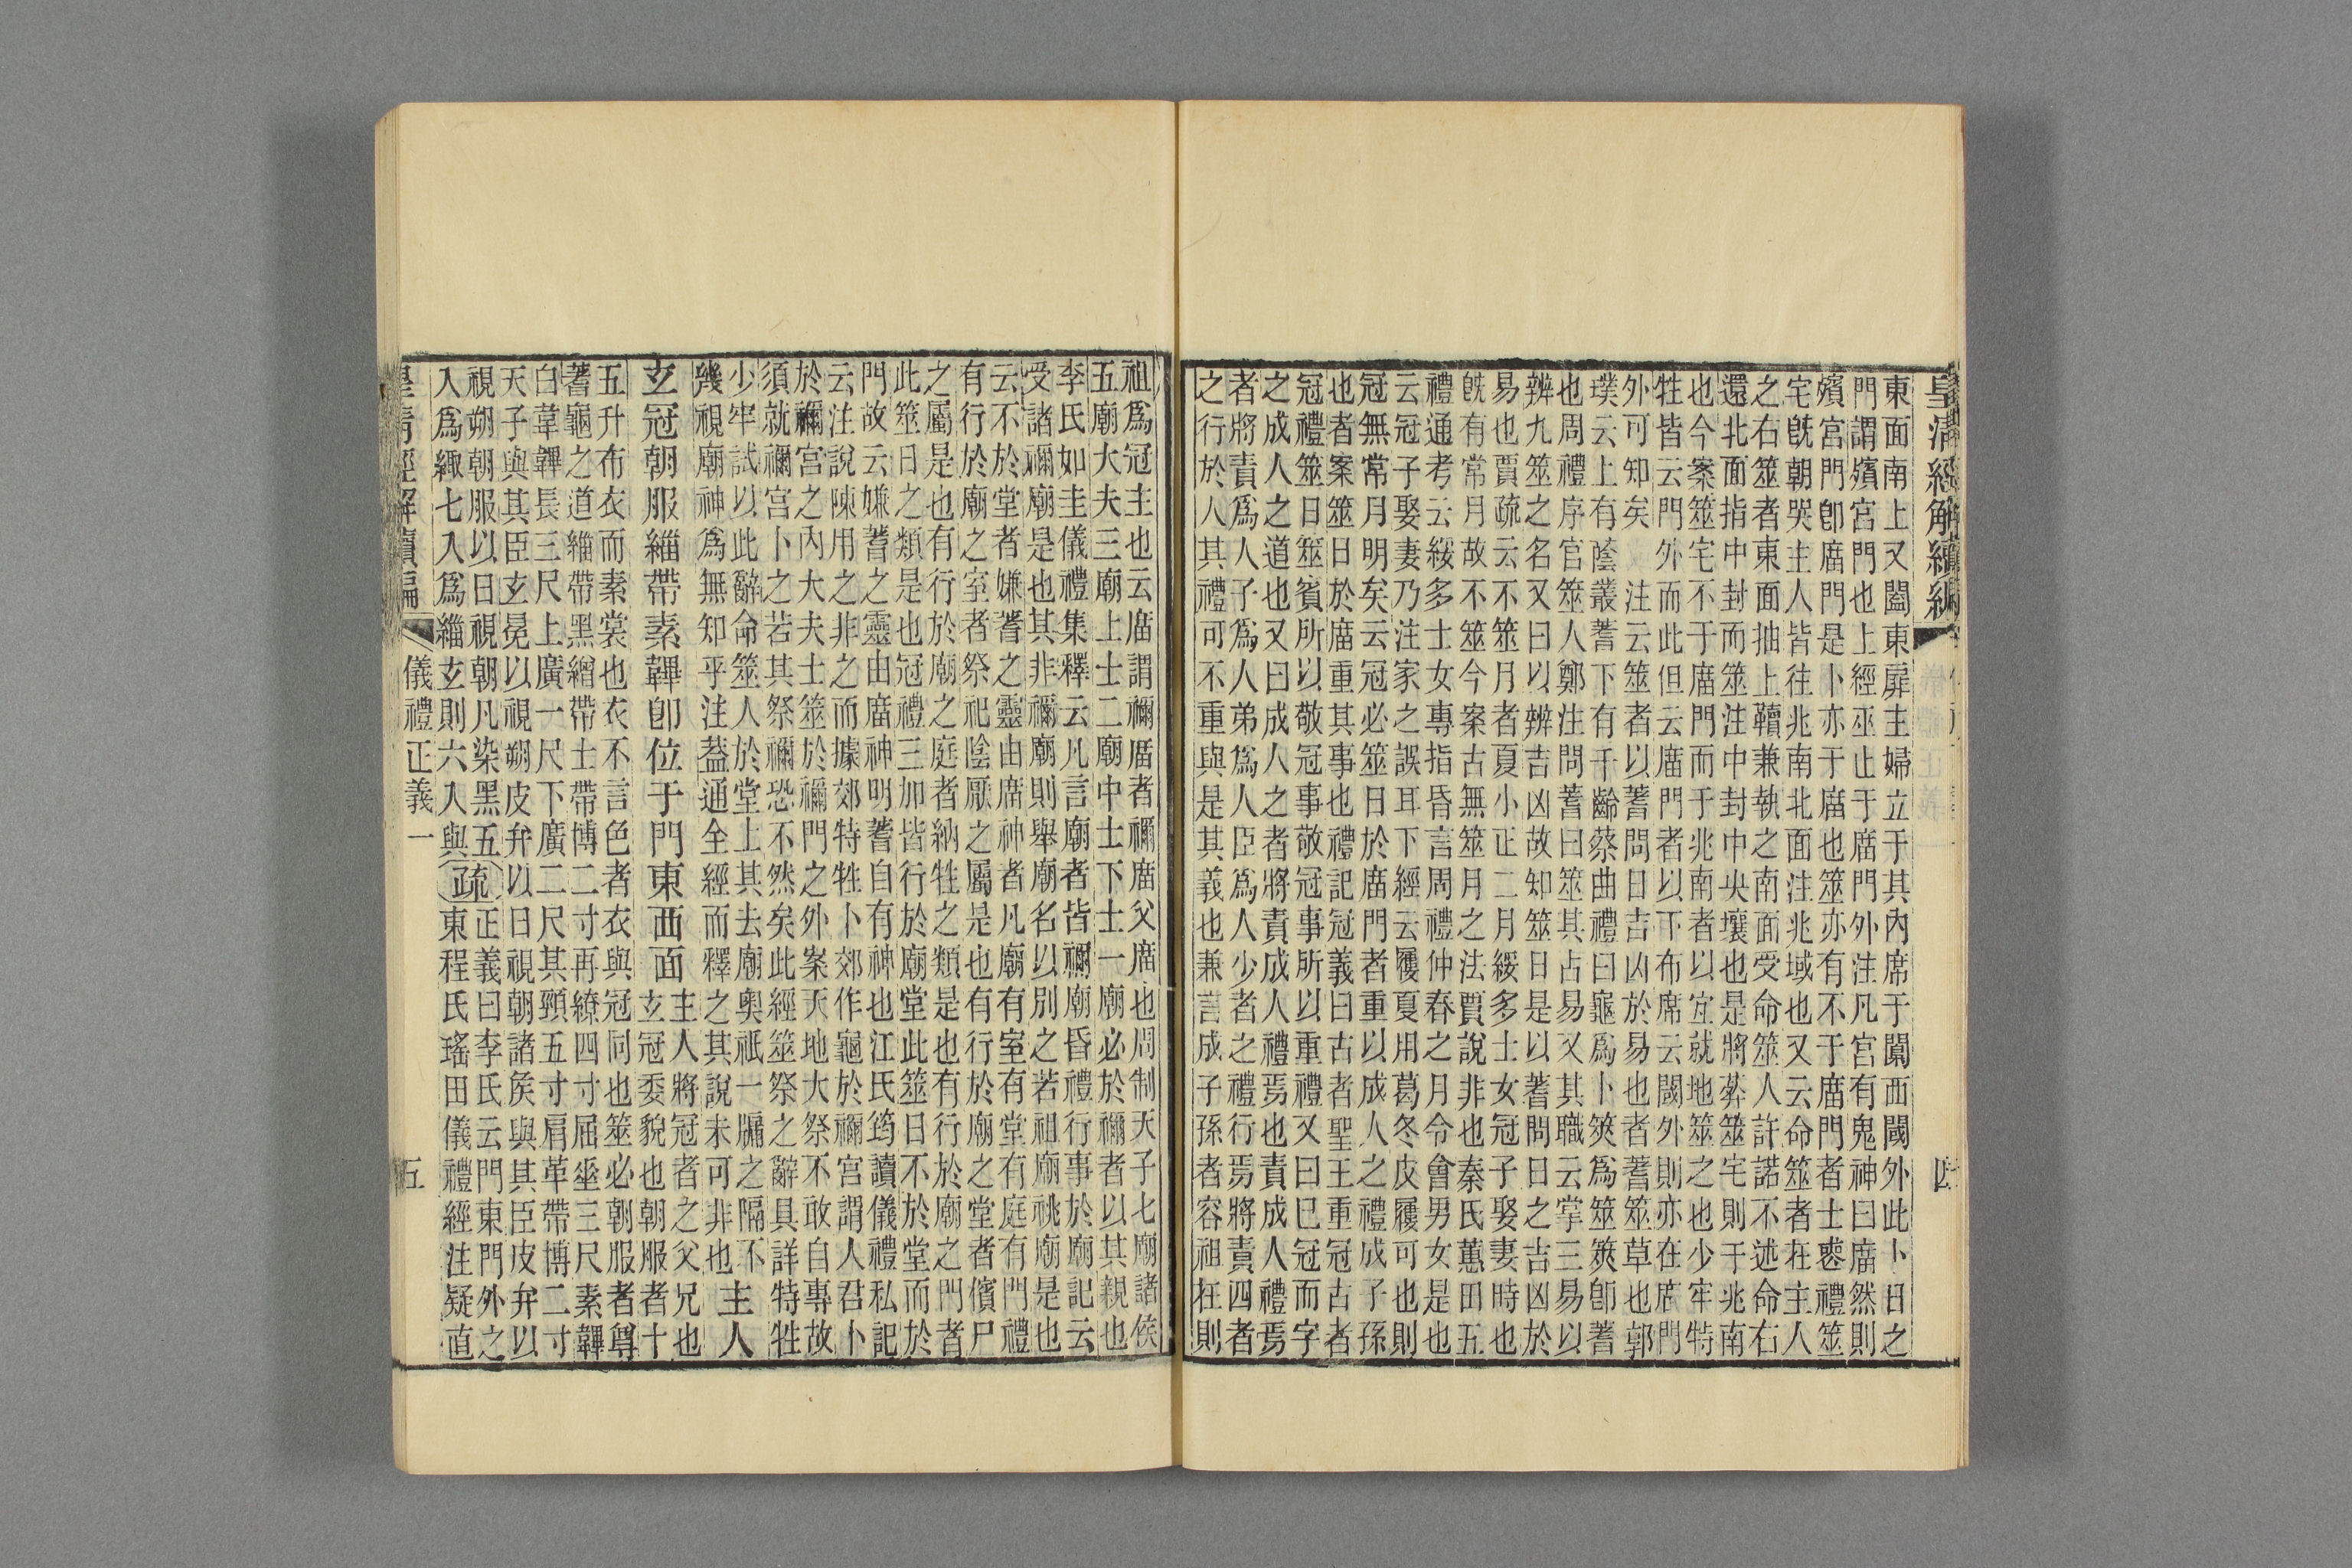 皇清經解續編
四
東面南上又闔東扉主婦立于其內席于闑西閾外此卜日之
門謂殯宮門也上經巫止于庿門外注凡宮有鬼神曰庿然則
殯宮門卽庿門是卜亦于庿也筮亦有不于庿門者士喪禮筮
宅旣朝哭主人皆往兆南北面注兆域也又云命筮者在主人
之右筮者東面抽上韇兼執之南面受命筮人許諾不述命右
還北面指中封而筮注中封中央壤也是將葬筮宅則于兆南
也今案筮宅不于庿門而于兆南者以宜就地筮之也少牢特
牲皆云門外而此但云庿門者以下布席云閾外則亦在庿門
外可知矣　注云筮者以蓍問日吉凶於易也者蓍筮草也郭
璞云上有蔭叢蓍下有千齡蔡曲禮曰龜爲卜筴爲筮筴卽蓍
也周禮序官筮人鄭注問蓍曰筮其占易又其職云掌三易以
辨九筮之名又曰以辨吉凶故知筮日是以蓍問日之吉凶於
易也賈疏云不筮月者夏小正二月綏多士女冠子娶妻時也
旣有常月故不筮今案古無筮月之法賈說非也秦氏蕙田五
禮通考云綏多士女專指昏言周禮仲春之月令會男女是也
云冠子娶妻乃注家之誤耳下經云屨夏用葛冬皮屨可也則
冠無常月明矣云冠必筮日於庿門者重以成人之禮成子孫
也者案筮日於庿重其事也禮記冠義曰古者聖王重冠古者
冠禮筮日筮賓所以敬冠事敬冠事所以重禮又曰已冠而字
之成人之道也又曰成人之者將責成人禮焉也責成人禮焉
者將責爲人子爲人弟爲人臣爲人少者之禮行焉將責四者
之行於人其禮可不重與是其義也兼言成子孫者容祖在則
祖爲冠主也云庿謂禰庿者禰庿父庿也周制天子七廟諸侯
五廟大夫三廟上士二廟中士下士一廟必於禰者以其親也
李氏如圭儀禮集釋云凡言廟者皆禰廟昏禮行事於廟記云
受諸禰廟是也其非禰廟則舉廟名以別之若祖廟祧廟是也
云不於堂者嫌蓍之靈由庿神者凡廟有室有堂有庭有門禮
有行於廟之室者祭祀陰厭之屬是也有行於廟之堂者儐尸
之屬是也有行於廟之庭者納牲之類是也有行於廟之門者
此筮日之類是也冠禮三加皆行於廟堂此筮日不於堂而於
門故云嫌蓍之靈由庿神明蓍自有神也江氏筠讀儀禮私記
云注說陳用之非之而據郊特牲卜郊作龜於禰宮謂人君卜
於禰宮之內大夫士筮於禰門之外案天地大祭不敢自專故
須就禰宮卜之若其祭禰恐不然矣此經筮祭之辭具詳特牲
少牢試以此辭命筮人於堂上其去廟奥祇一牖之隔不
幾視廟神爲無知乎注葢通全經而釋之其說未可非也　主人
玄冠朝服緇帶素韠卽位于門東西面主人將冠者之父兄也
玄冠委貌也朝服者十
五升布衣而素裳也衣不言色者衣與冠同也筮必朝服者尊
蓍龜之道緇帶黑繒帶士帶博二寸再繚四寸屈垂三尺素韠
白韋韠長三尺上廣一尺下廣二尺其頸五寸肩革帶博二寸
天子與其臣玄冕以視朔皮弁以日視朝諸侯與其臣皮弁以
視朔朝服以日視朝凡染黑五
入爲緅七入爲緇玄則六入與疏正義曰李氏云門東門外之
東程氏瑤田儀禮經注疑直
皇清經解續編
儀禮正義一
五